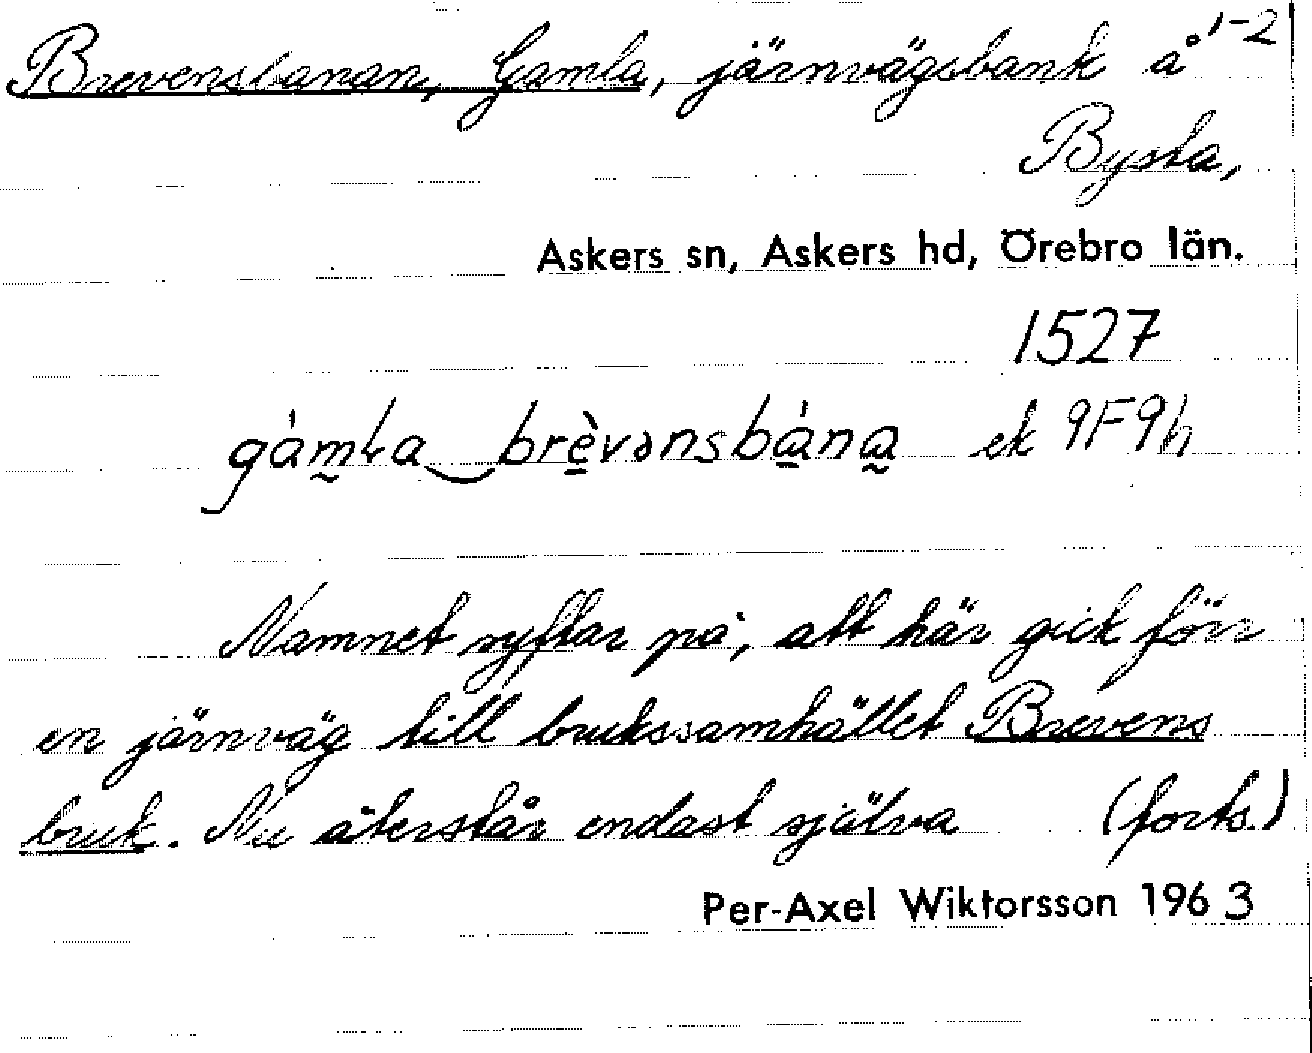 Brevensbanan, Gamla, järnvägsbank å 1-2
Bysta,
Askers sn, Askers hd, Örebro län.
1527
gàmḷa‿brèvənsbàna ek 9F9h
Namnet syftar på, att här gick förr
en järnväg till brukssamhället Brevens
bruk. Nu återstår endast själva (forts.)
Per-Axel Wiktorsson 1963